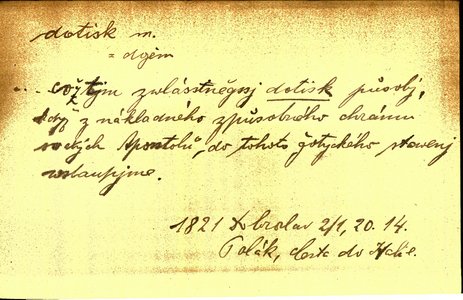 dotisk m.
= dojem
... což tjm zwlásstněgssj dotisk působj,
když z nákladného způsobného chrámu
swatých Apostolů, do tohoto gotyckého stawenj
wstaupjme.
1821 Dobroslav 2/1, 20. 14.
Polák, Cesta do Itálie.